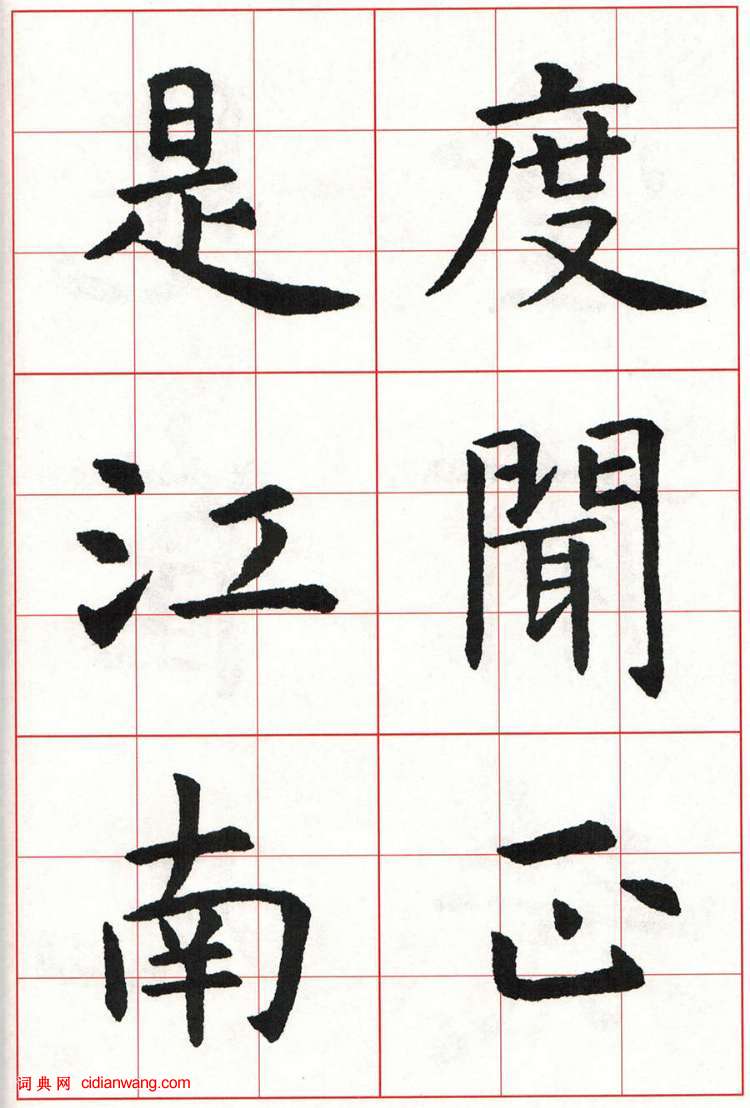 度聞正
是江南
词典网 cidianwang.com